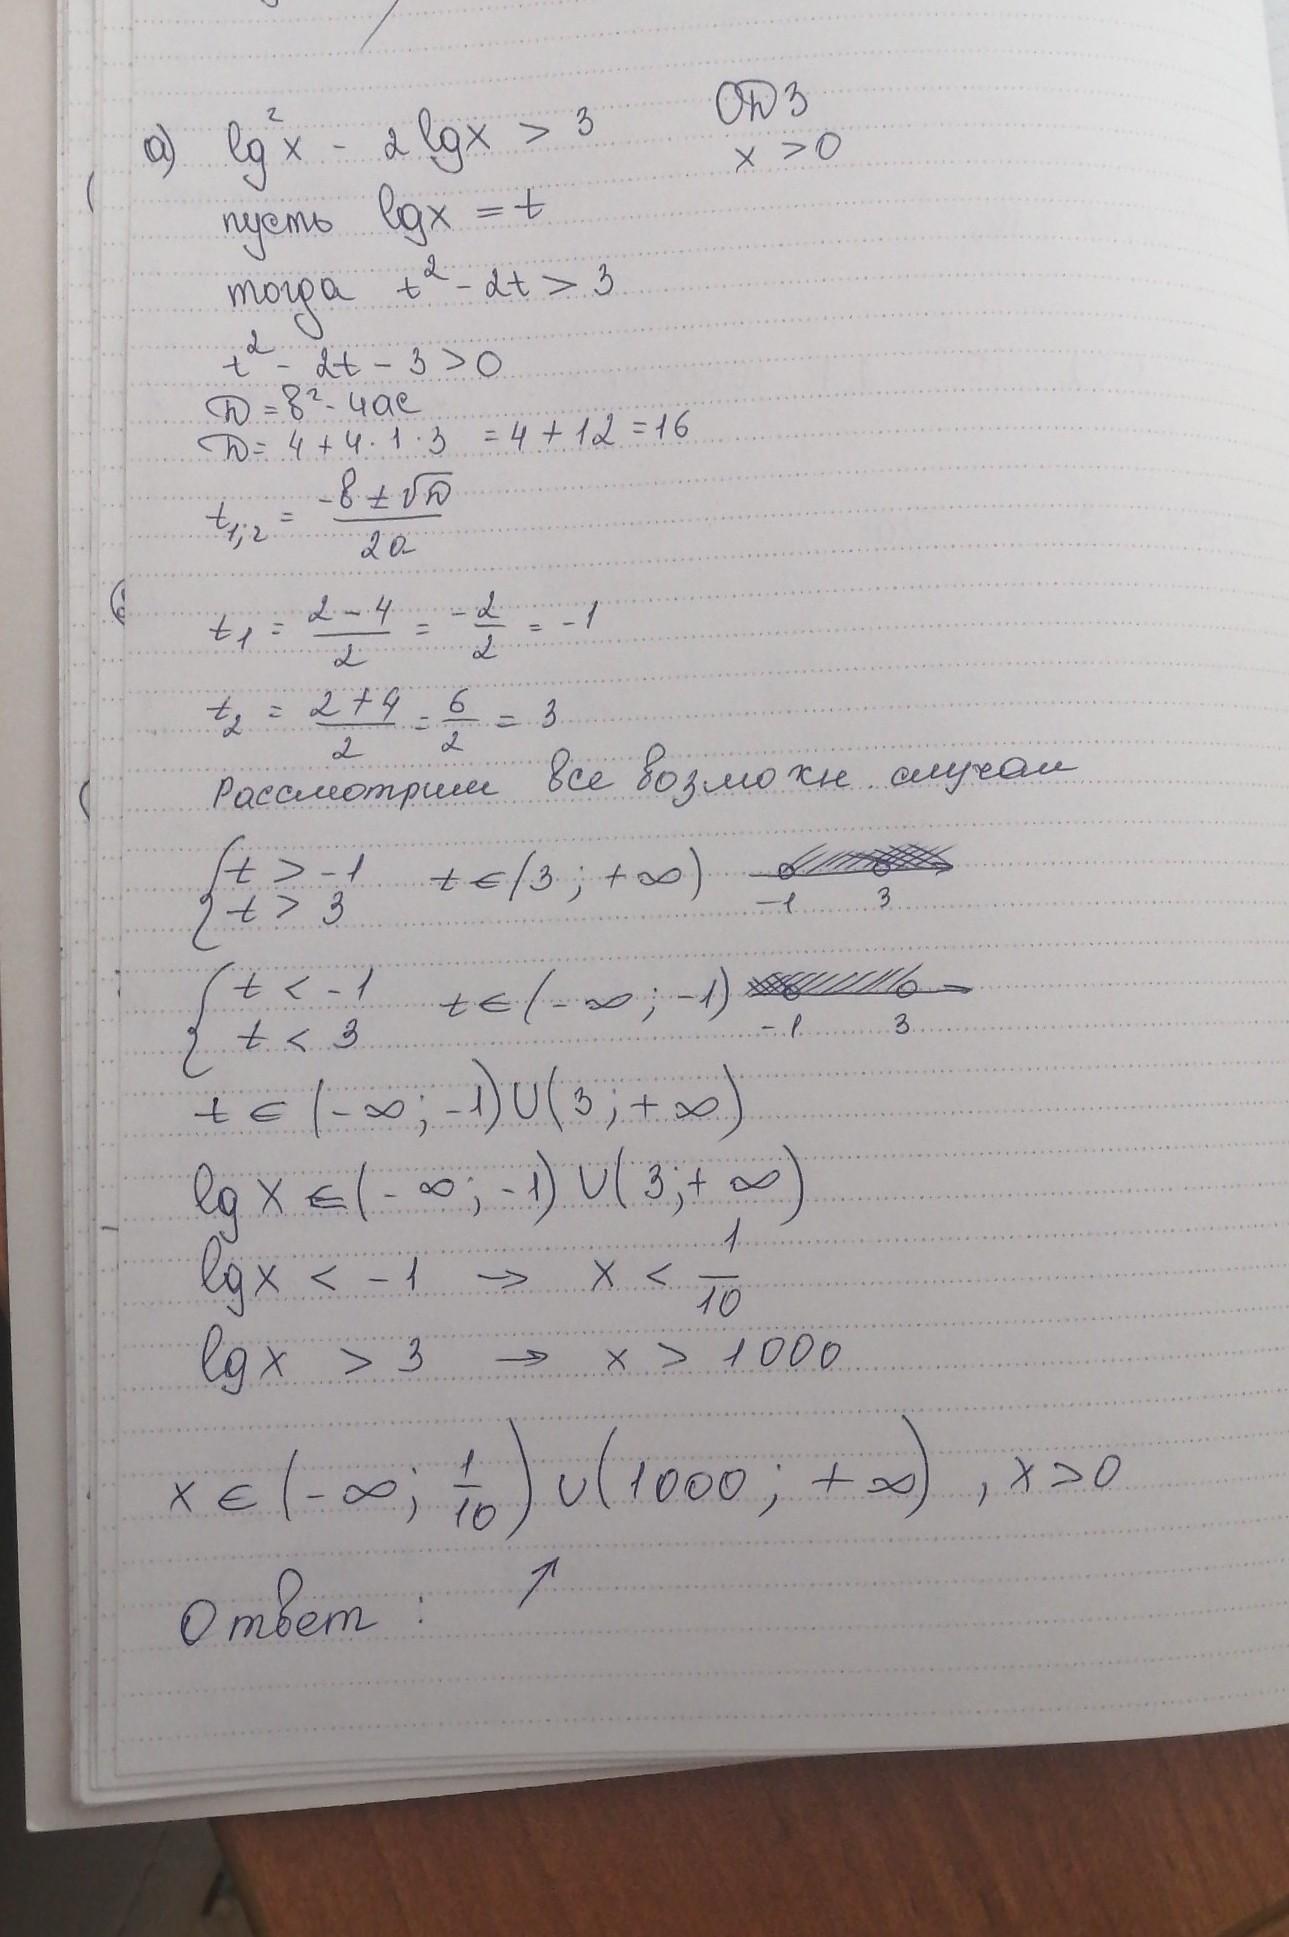 а) lg²x - 2lgx > 3
ОДЗ
x > 0
пусть lgx = t
тогда t² - 2t > 3
t² - 2t - 3 > 0
D = b² - 4ac
D = 4 + 4·1·3 = 4 + 12 = 16
t₁;₂ = (-b ± √D) / 2a
t₁ = (2 - 4) / 2 = -2/2 = -1
t₂ = (2 + 4) / 2 = 6/2 = 3
Рассмотрим все возможн. случаи
{ t > -1
t > 3
t ∈ (3; +∞)
-1 3
{ t < -1
t < 3
t ∈ (-∞; -1)
-1 3
t ∈ (-∞; -1) ∪ (3; +∞)
lg x ∈ (-∞; -1) ∪ (3; +∞)
lgx < -1 → x < 1/10
lgx > 3 → x > 1000
x ∈ (-∞; 1/10) ∪ (1000; +∞), x > 0
Ответ: ↗